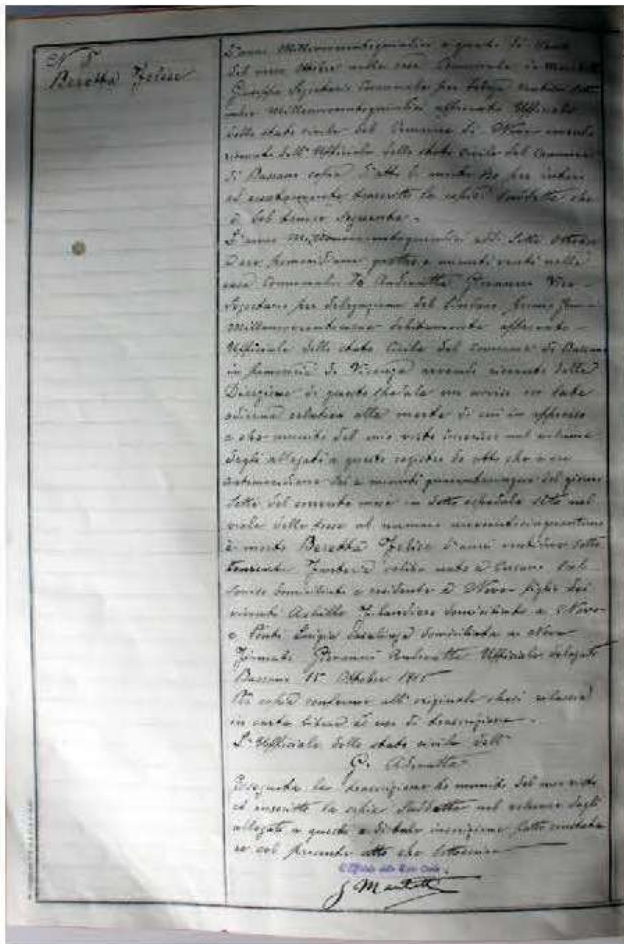 N 8
Beretta Felice
L'anno Millenovecentoquindici e questo dì venti
del mese Ottobre nella casa Comunale io
Giuseppe Segretario Comunale per delega
Millenovecentoquindici approvata Ufficiale
dello stato civile del Comune di Nova avendo
ricevuto dall'Ufficiale dello stato civile del Comune
di Bassano copia d'atto di morte ho per intero
ed esattamente trascritto la copia suddetta che
è del tenore seguente.
L'anno Millenovecentoquindici addì sette Ottobre
a ore pomeridiane quattro e minuti venti nella
casa Comunale. Io Andreatta Giovanni Vice-
Segretario per delegazione del Sindaco
Millenovecento debitamente approvata
Ufficiale dello stato Civile del Comune di Bassano
in provincia di Vicenza avendo ricevuto dalla
Direzione di questo spedale un avviso in data
odierna relativo alla morte di cui in appresso
e che munito del mio visto inserisco nel volume
degli allegati a questo registro do atto che a ore
antimeridiane sei e minuti quarantacinque del giorno
sette del corrente mese in detto ospedale sito nel
viale delle fosse al numero
è morto Beretta Felice d'anni ventuno sotto
tenente Fanteria celibe nato a Cusano
residente a Nova figlio dei
viventi Achille Filandiere domiciliato a Nova
e Ponti Luigia Casalinga domiciliata a Nova
Firmato Giovanni Andreatta Ufficiale delegato
Bassano 15 Ottobre 1915
Per copia conforme all'originale che si rilascia
in carta libera ad uso di trascrizione.
L'Ufficiale dello stato civile
G. Andreatta
Eseguita la trascrizione ho munito del mio visto
ed inserito la copia suddetta nel volume degli
allegati a questo e di tale inserzione fatto
col presente atto che sottoscrivo
L'Ufficiale dello Stato Civile